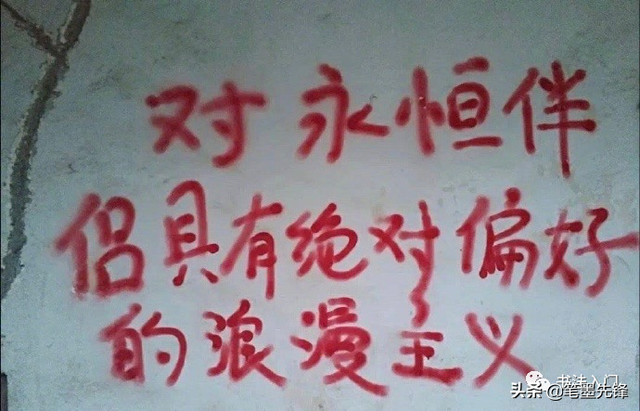 对永恒伴
侣具有绝对偏好
的浪漫主义
书法入门
头条@笔墨先锋